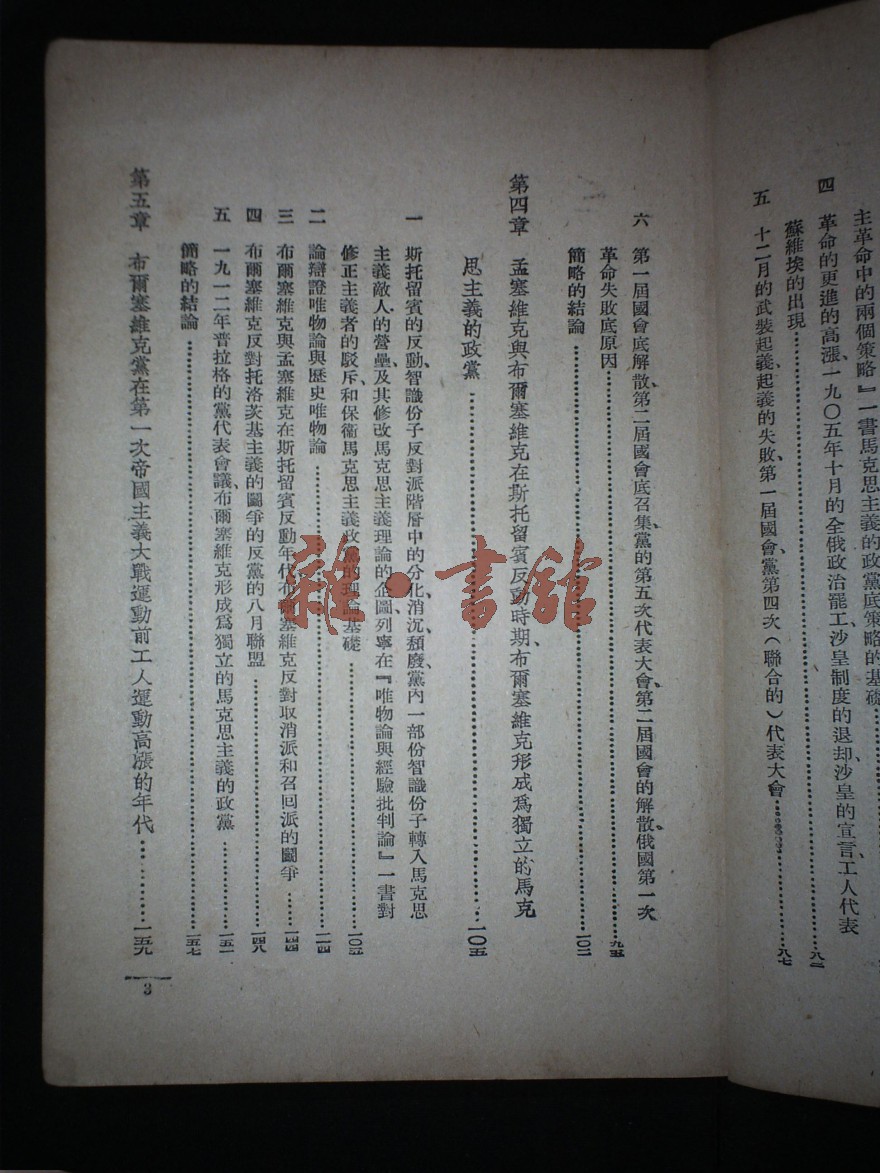 主革命中的兩個策略』一書馬克思主義的政黨底策略的基礎
四 革命的更進的高漲、一九〇五年十月的全俄政治罷工、沙皇制度的退却、沙皇的宣言、工人代表
蘇維埃的出現……八二
五 十二月的武裝起義、起義的失敗、第一屆國會、黨第四次（聯合的）代表大會……八七
六 第一屆國會底解散、第二屆國會底召集、黨的第五次代表大會、第二屆國會的解散、俄國第一次
革命失敗底原因……九五
簡略的結論……一〇二
第四章 孟塞維克與布爾塞維克在斯托留賓反動時期、布爾塞維克形成爲獨立的馬克
思主義的政黨……一〇五
一 斯托留賓的反動、智識份子反對派階層中的分化、消沉、頹廢、黨內一部份智識份子轉入馬克思
主義敵人的營壘、及其修改馬克思主義理論的企圖、列寧在『唯物論與經驗批判論』一書對
修正主義者的駁斥和保衞馬克思主義政黨的理論基礎……一〇五
二 論辯證唯物論與歷史唯物論……一一四
三 布爾塞維克與孟塞維克在斯托留賓反動年代布爾塞維克反對取消派和召回派的鬭爭……一四四
四 布爾塞維克反對托洛茨基主義的鬭爭的反黨的八月聯盟……一四八
五 一九一二年普拉格的黨代表會議、布爾塞維克形成爲獨立的馬克思主義的政黨……一五一
簡略的結論……一五七
第五章 布爾塞維克黨在第一次帝國主義大戰運動前工人運動高漲的年代……一五九
3
雜·書舘